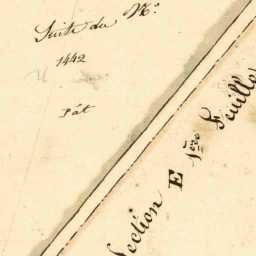 Suite du N.o
1442
Pât
Section E 1ère Feuille